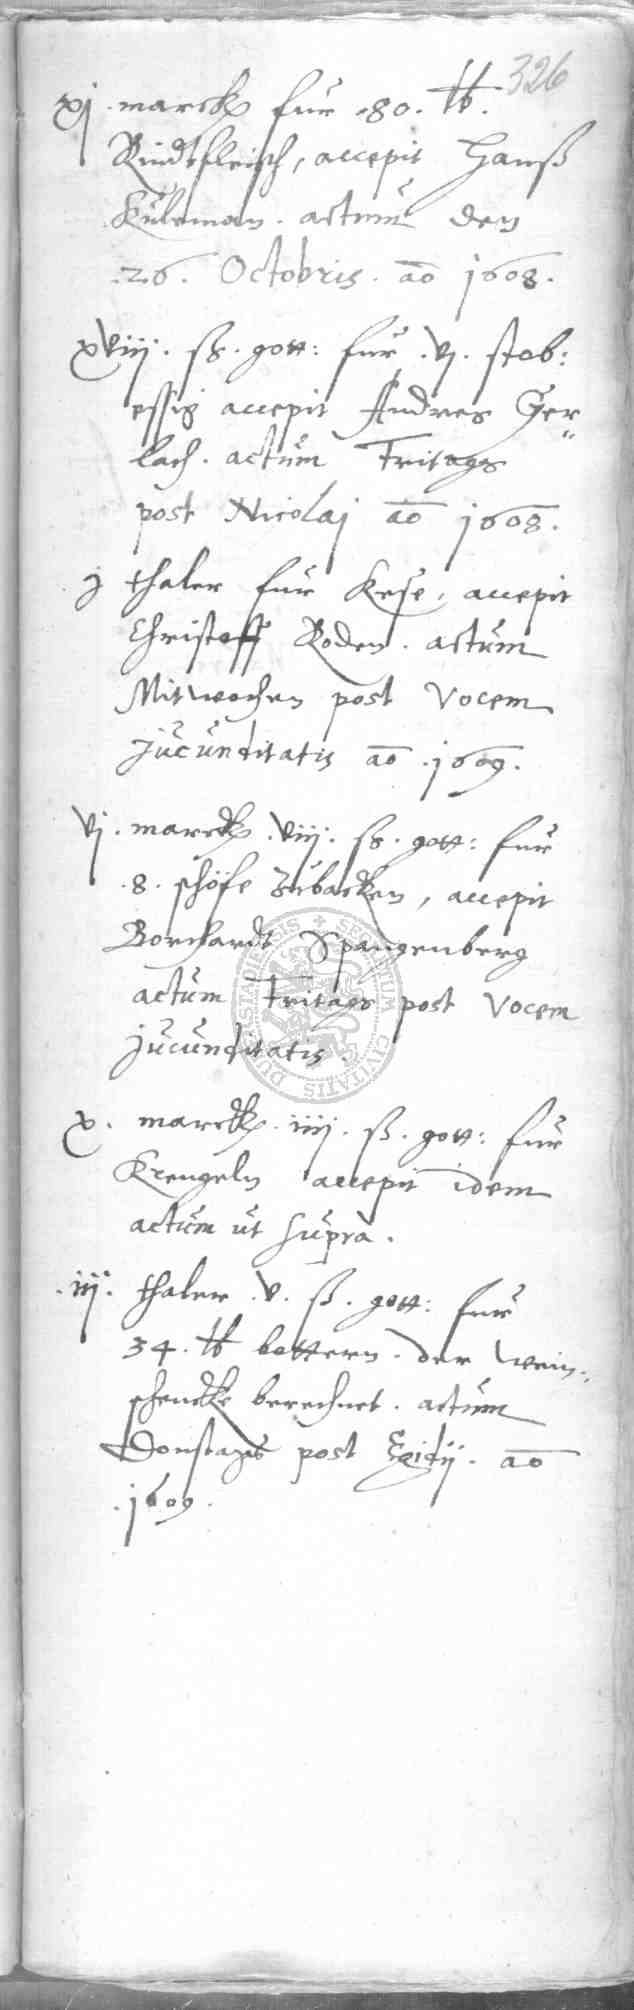 326
xj. marck fur .80. lb.
Rindtfleisch, accepit Hanß
Kuleman. actum den
.26. Octobris. ao 1608.
xviij. ß. gott: fur .vj. stob:
essig accepit Andres Ger„
lach. actum Fritags
post Nicolaj ao 1608.
j thaler fur Kese, accepit
Christoff Roden. actum
Mitwochen post Vocem
Jucunditatis ao .1609.
vj. marck .viij. ß. gott: fur
.8. schofe Zubacken, accepit
Borchardt Spangenberg
actum Fritags post Vocem
Jucunditatis.
x. marck .iiij. ß. gott: fur
Krengeln accepit idem
actum ut supra.
.iij. thaler .v. ß. gott: fur
34. lb bottern. der wein„
schencke berechnet. actum
Donstags post Egidij. ao
.1609.
SECRETUM CIVITATIS DUDERSTADIENSIS